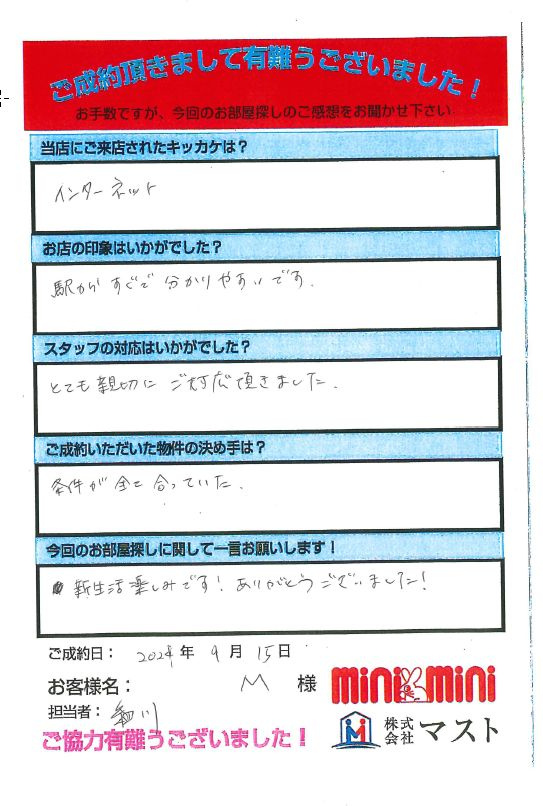 ご成約頂きまして有難うございました！
お手数ですが、今回のお部屋探しのご感想をお聞かせ下さい
当店にご来店されたキッカケは？
インターネット
お店の印象はいかがでした？
駅からすぐで分かりやすいです.
スタッフの対応はいかがでした？
とても親切にご対応頂きました.
ご成約いただいた物件の決め手は？
条件が全て合っていた.
今回のお部屋探しに関して一言お願いします！
新生活楽しみです！ありがとうございました！
ご成約日： 2024年 9月 15日
お客様名： M 様
minimini
担当者： 細川
株式会社 マスト
ご協力有難うございました！